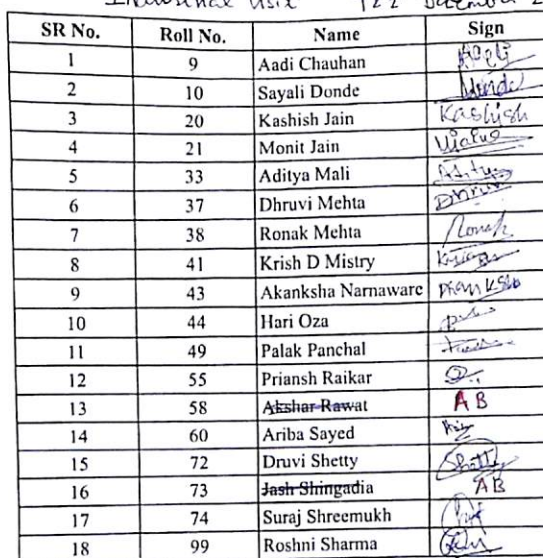 Industrial visit 22 December 2
SR No. Roll No. Name Sign
1 9 Aadi Chauhan
2 10 Sayali Donde
3 20 Kashish Jain Kashish
4 21 Monit Jain
5 33 Aditya Mali
6 37 Dhruvi Mehta Dhruvi
7 38 Ronak Mehta Ronak
8 41 Krish D Mistry
9 43 Akanksha Narnaware
10 44 Hari Oza
11 49 Palak Panchal
12 55 Priansh Raikar
13 58 Akshar Rawat AB
14 60 Ariba Sayed
15 72 Druvi Shetty Shetty
16 73 Jash Shingadia AB
17 74 Suraj Shreemukh
18 99 Roshni Sharma